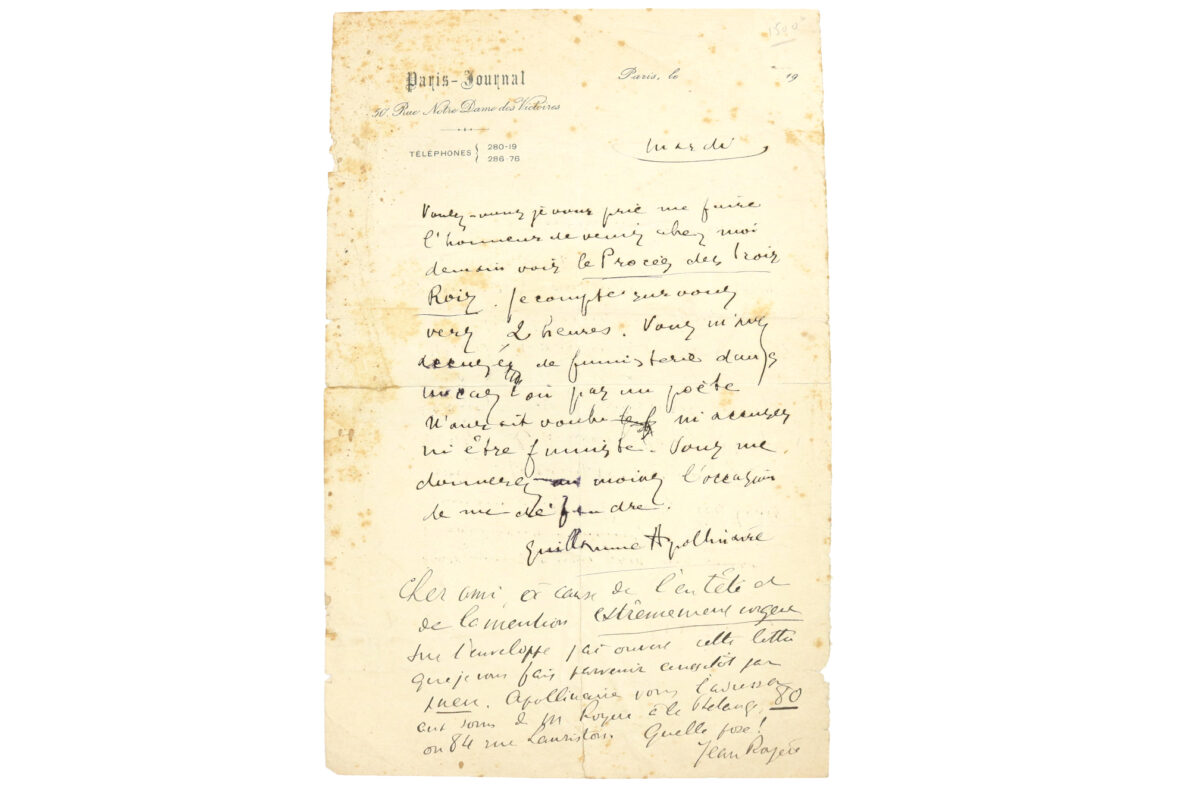 150
Paris-Journal
Paris, le 19
50, Rue Notre Dame des Victoires
TÉLÉPHONES { 280-19
286-76
mardi
Voulez-vous je vous prie me faire
l'honneur de venir chez moi
demain voir le Procès des Trois
Rois. Je compte sur vous
vers 2 heures. Vous m'avez
accusé de fumisterie dans
un cas où pas un poète
n'aurait voulu ni accuser
ni être fumiste. Vous me
donnerez au moins l'occasion
de me défendre.
Guillaume Apollinaire
Cher ami à cause de l'entête et
de la mention extrêmement urgent
sur l'enveloppe j'ai ouvert cette lettre
que je vous fais parvenir aussitôt par
pneu. Apollinaire vous l'adressa
aux soins de M Royère à la Phalange, 80
ou 84 rue Lauriston. Quelle
Jean Royère